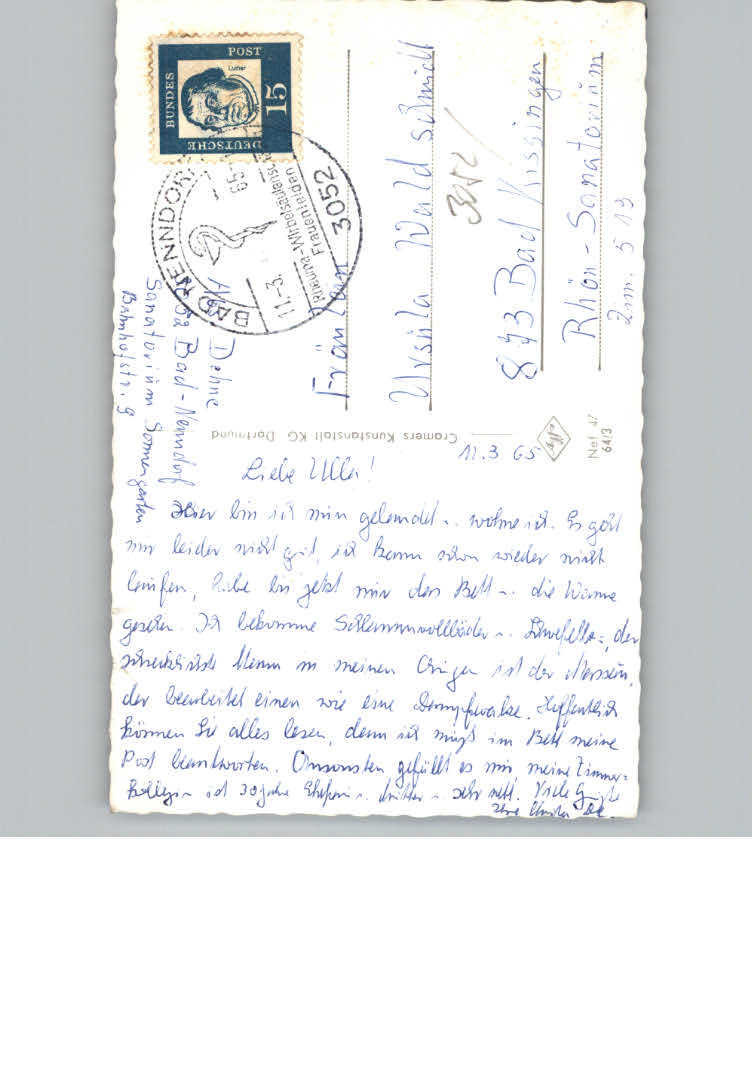 DEUTSCHE
BUNDES
POST
Luther
15
BAD NENNDORF
3052
11.-3.
65-
Rheuma-Wirbelsäulensch
Frauenleiden
Abs. Dehne
3052 Bad-Nenndorf
Sanatorium Sonnengarten
Bahnhofstr. 9
Fräulein
Ursula Waldschmidt
3052/
873 Bad Kissingen
Rhön-Sanatorium
Zim. 513
Cramers Kunstanstalt KG Dortmund
Nef. 47
64/3
11.3 65
Liebe Ulla!
Hier bin ich nun gelandet u. wohne ich. Es geht
mir leider nicht gut, ich kann schon wieder nicht
laufen, habe bis jetzt nur das Bett u. die Wanne
gesehen. Ich bekomme Schlammvollbäder u. der
schrecklichste Mann in meinen Augen ist der Masseur,
der bearbeitet einen wie eine Dampfwalze. Hoffentlich
können Sie alles lesen, denn ich muß im Bett meine
Post beantworten. Ansonsten gefällt es mir, meine Zimmer-
kollegin ist 30 Jahre u. sehr nett. Viele Grüße
Ihre